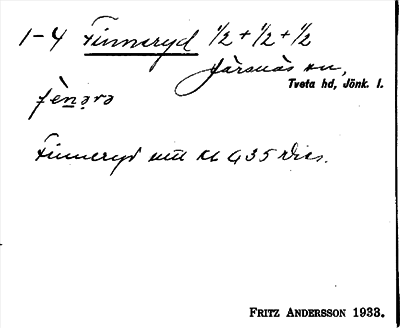 1-4 Finneryd 1/2 + 1/2 + 1/2
Järsnäs sn,
Tveta hd, Jönk. l.
fènərə
Finneryd mtl Kb G 35 Vies.
FRITZ ANDERSSON 1933.